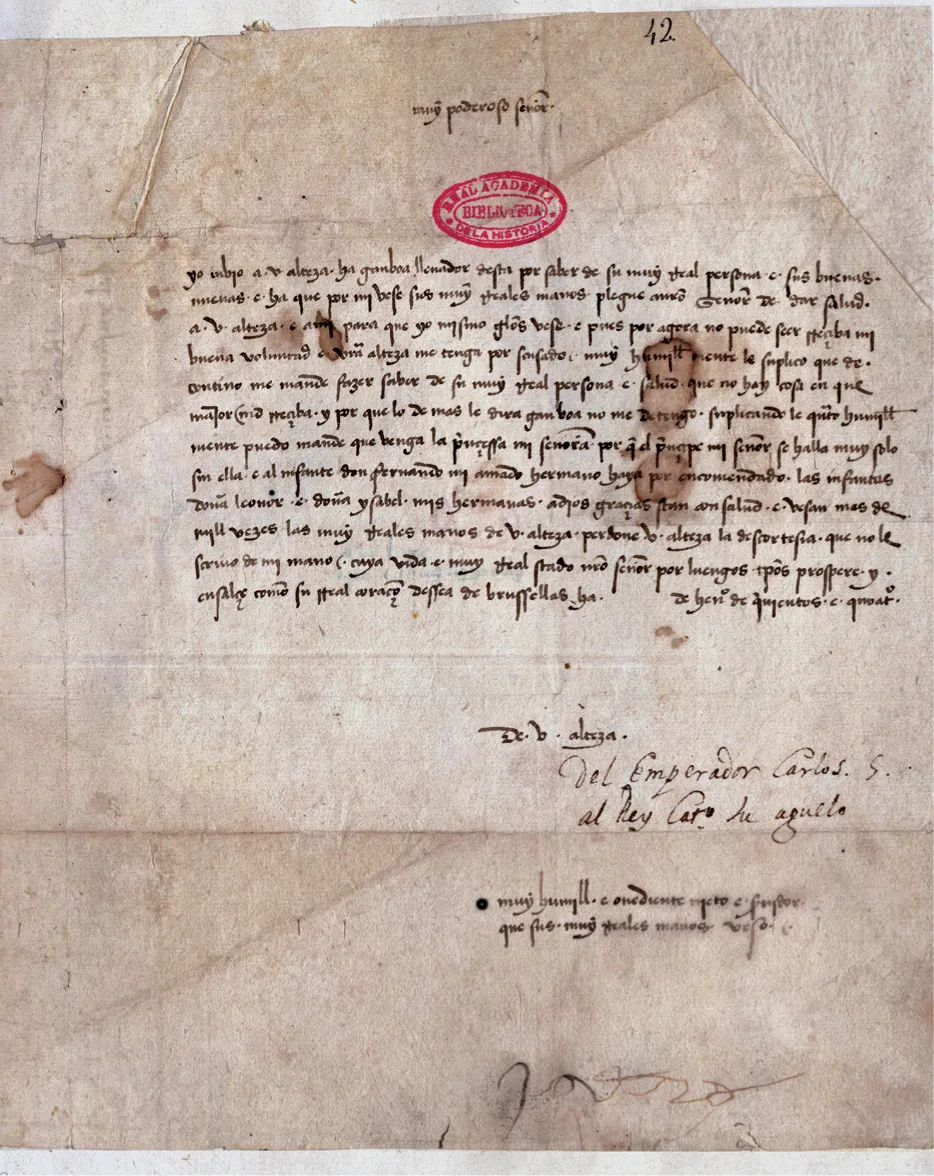 42.
muy poderoso señor.
REAL ACADEMIA
BIBLIOTECA
DE LA HISTORIA
yo inbio a. v. alteza. ha ganboa llevador desta por saber de su muy Real persona. e. sus buenas.
nuevas. e. ha que por mi vese sus muy Reales manos. plegue a nro Señor de dar salud.
a. v. alteza. e a mi para que yo mismo gelos vese. e pues por agora no puede seer Reçiba mi
buena voluntad e. vra alteza me tenga por scusado. muy humill mente le suplico que de.
contino me mande fazer saber de su muy Real persona e. salud. que no hay cosa en que
maior md Reçiba. y por que lo de mas le dira ganboa no me detengo. suplicando le quto humill
mente puedo mande que venga la prinçessa mi señora. por q el prinçipe mi señor se halla muy solo
sin ella. e al infante don fernando mi amado hermano haya por encomendado. las infantas
doña leonor. e. doña ysabel. mis hermanas. a dios graçias stan con salud. e. vesan mas de
mill vezes las muy Reales manos de v. alteza. perdone v. alteza la descortesia. que no le
scrivo de mi mano. cuya vida. e. muy Real stado nro señor por luengos tpos prospere. y.
ensalçe como su Real coraçon dessea de brussellas ha. de hen° de quientos. e. quoat°.
De. v. alteza.
Del Emperador Carlos. 5.
al Rey Cat° su aguelo
muy humill. e obediente nieto e. servidor
que sus. muy Reales manos. vesa.